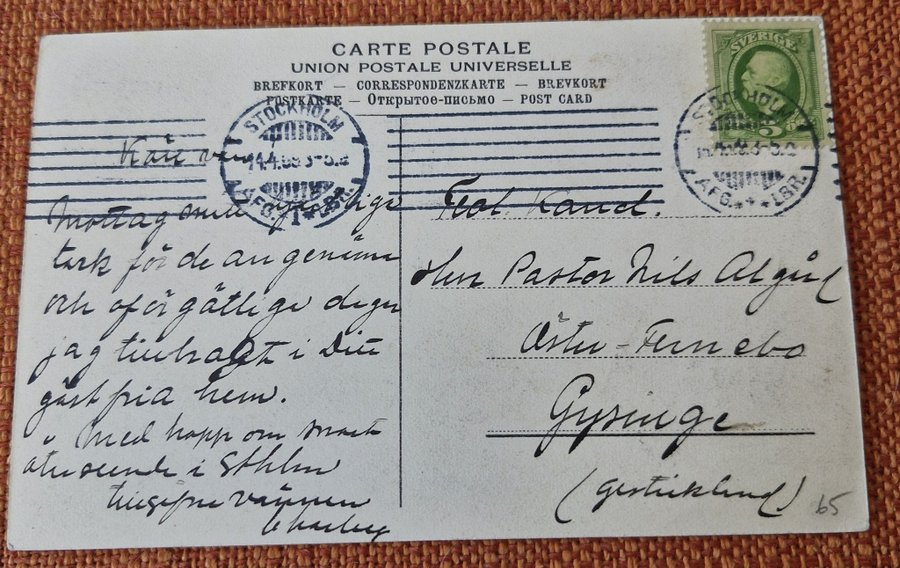 CARTE POSTALE
UNION POSTALE UNIVERSELLE
BREFKORT — CORRESPONDENZKARTE — BREVKORT
POSTKARTE — Открытое-письмо — POST CARD
SVERIGE
5
STOCKHOLM
14.4.05
AFG. 1 LBR.
STOCKHOLM
AFG. LBR.
Käre vän
Mottag
tack för de angenäma
och oförgätlige dagar
jag tillbragt i Ditt
gästfria hem.
Med hopp om snart
återseende i Sthlm
tillgifne vännen
Charley
Teol. Kand.
Herr Pastor Nils Algård
Öster-Fernebo
Gysinge
(Gestrikland)
65